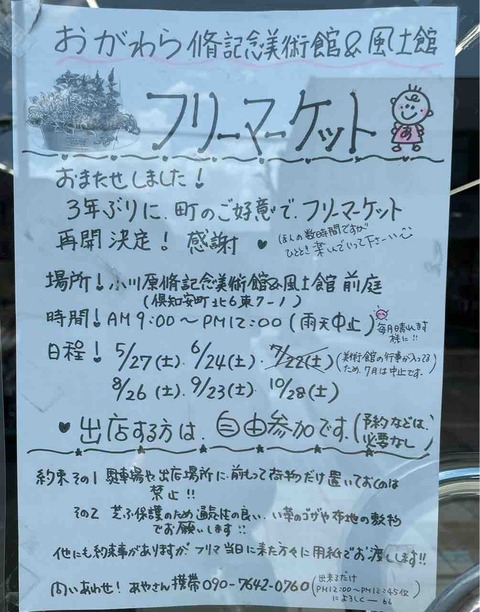 おがわら脩記念美術館&風土館
フリーマーケット
あ
おまたせしました!
3年ぶりに、町のご好意で、フリーマーケット
再開決定! 感謝
ほんの数時間ですが
ひととき楽んでいって下さーい
場所!小川原脩記念美術館&風土館 前庭
(倶知安町北6東7-1)
時間!AM9:00〜PM12:00(雨天中止)
毎月晴れます
様に!!
日程!5/27(土).6/24(土).7/22(土)
(美術館の行事が入ってる
ため、7月は中止です。)
8/26(土).9/23(土).10/28(土)
出店する方は、自由参加です。(予約などは、
必要なし)
約束その1 駐車場や出店場所に、前もって荷物だけ置いておくのは
禁止!!
その2 芝ふ保護のため通気性の良い、い草のゴザや布地の敷物
でお願いします
他にも約束事がありますが フリマ当日に来た方々に用紙でお渡しします!!
問いあわせ!あやさん携帯090-7642-0760
(出来るだけ
PM12:00〜PM12:45位
によろしくー